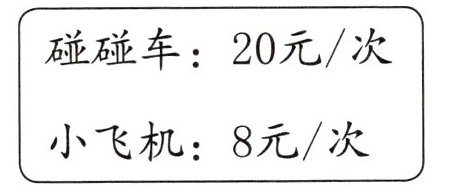 碰碰车：20元/次
小飞机：8元/次